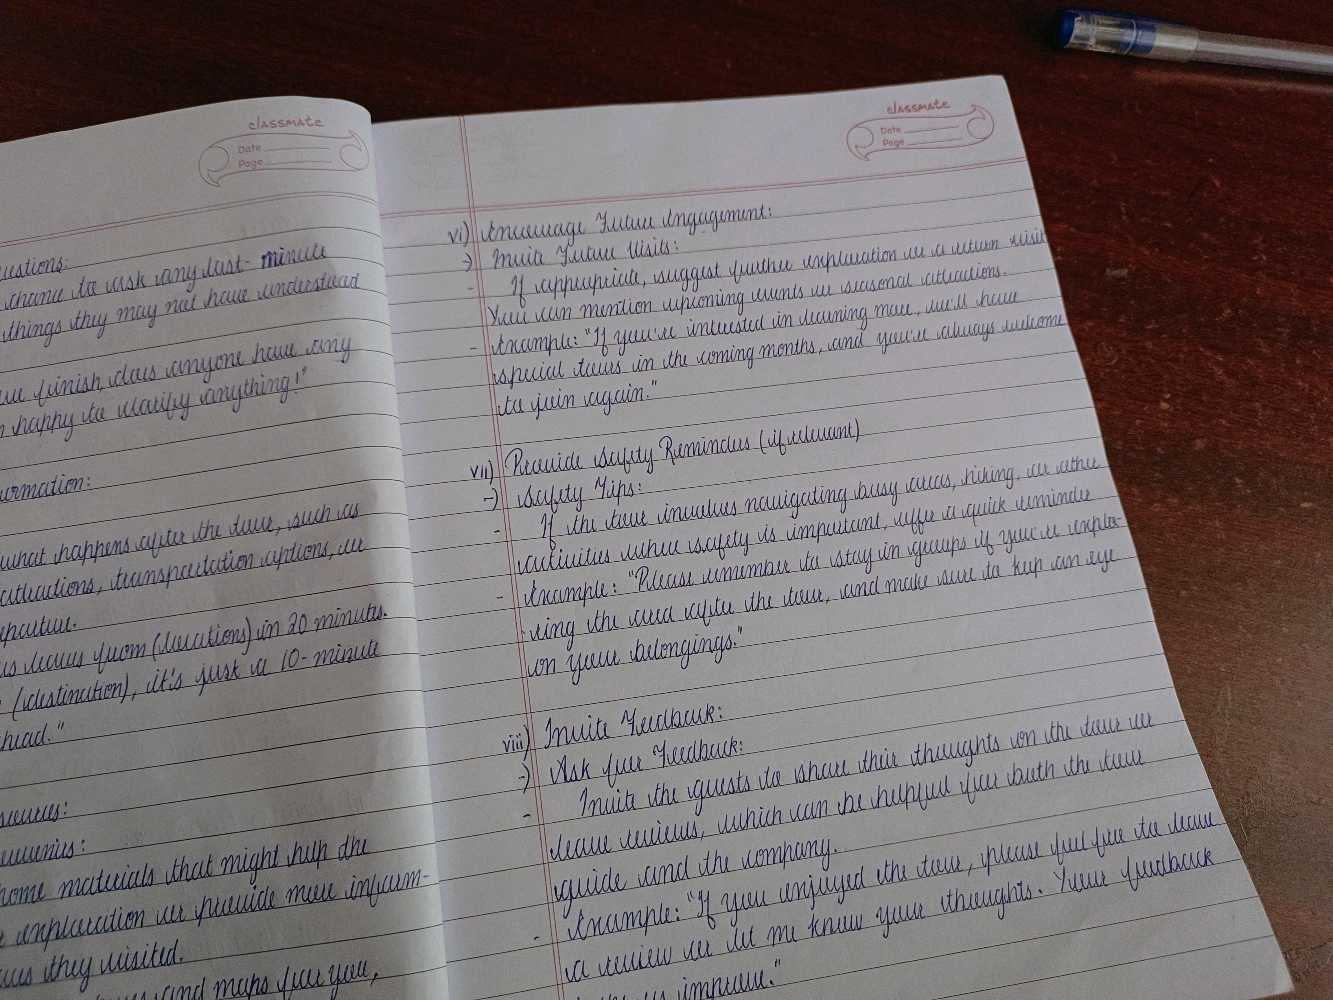 classmate
Date
Page
uestions:
chance to ask any last-minute
things they may not have understood
we finish, does anyone have any
happy to clarify anything!"
formation:
what happens after the tour, such as
attractions, transportation options, or
eparture.
us leaves from (locations) in 20 minutes.
(destination), it's just a 10-minute
head."
sources:
ouvenirs:
home materials that might help the
exploration or provide more inform-
they visited.
and maps for you,
classmate
Date
Page
vi) Encourage Future Engagement:
→) Invite Future Visits:
- If appropriate, suggest further exploration or a return visit
You can mention upcoming events or seasonal attractions.
- Example: "If you're interested in learning more, we'll have
special tours in the coming months, and you're always welcome
to join again."
vii) Provide Safety Reminders (if relevant)
→) Safety Tips:
- If the tour involves navigating busy areas, hiking, or other
activities where safety is important, offer a quick reminder
- Example: "Please remember to stay in groups if you're explor-
ring the area after the tour, and make sure to keep an eye
on your belongings."
viii) Invite Feedback:
→) Ask for Feedback:
- Invite the guests to share their thoughts on the tour or
leave reviews, which can be helpful for both the tour
guide and the company.
- Example: "If you enjoyed the tour, please feel free to leave
a review or let me know your thoughts. Your feedback
us improve."